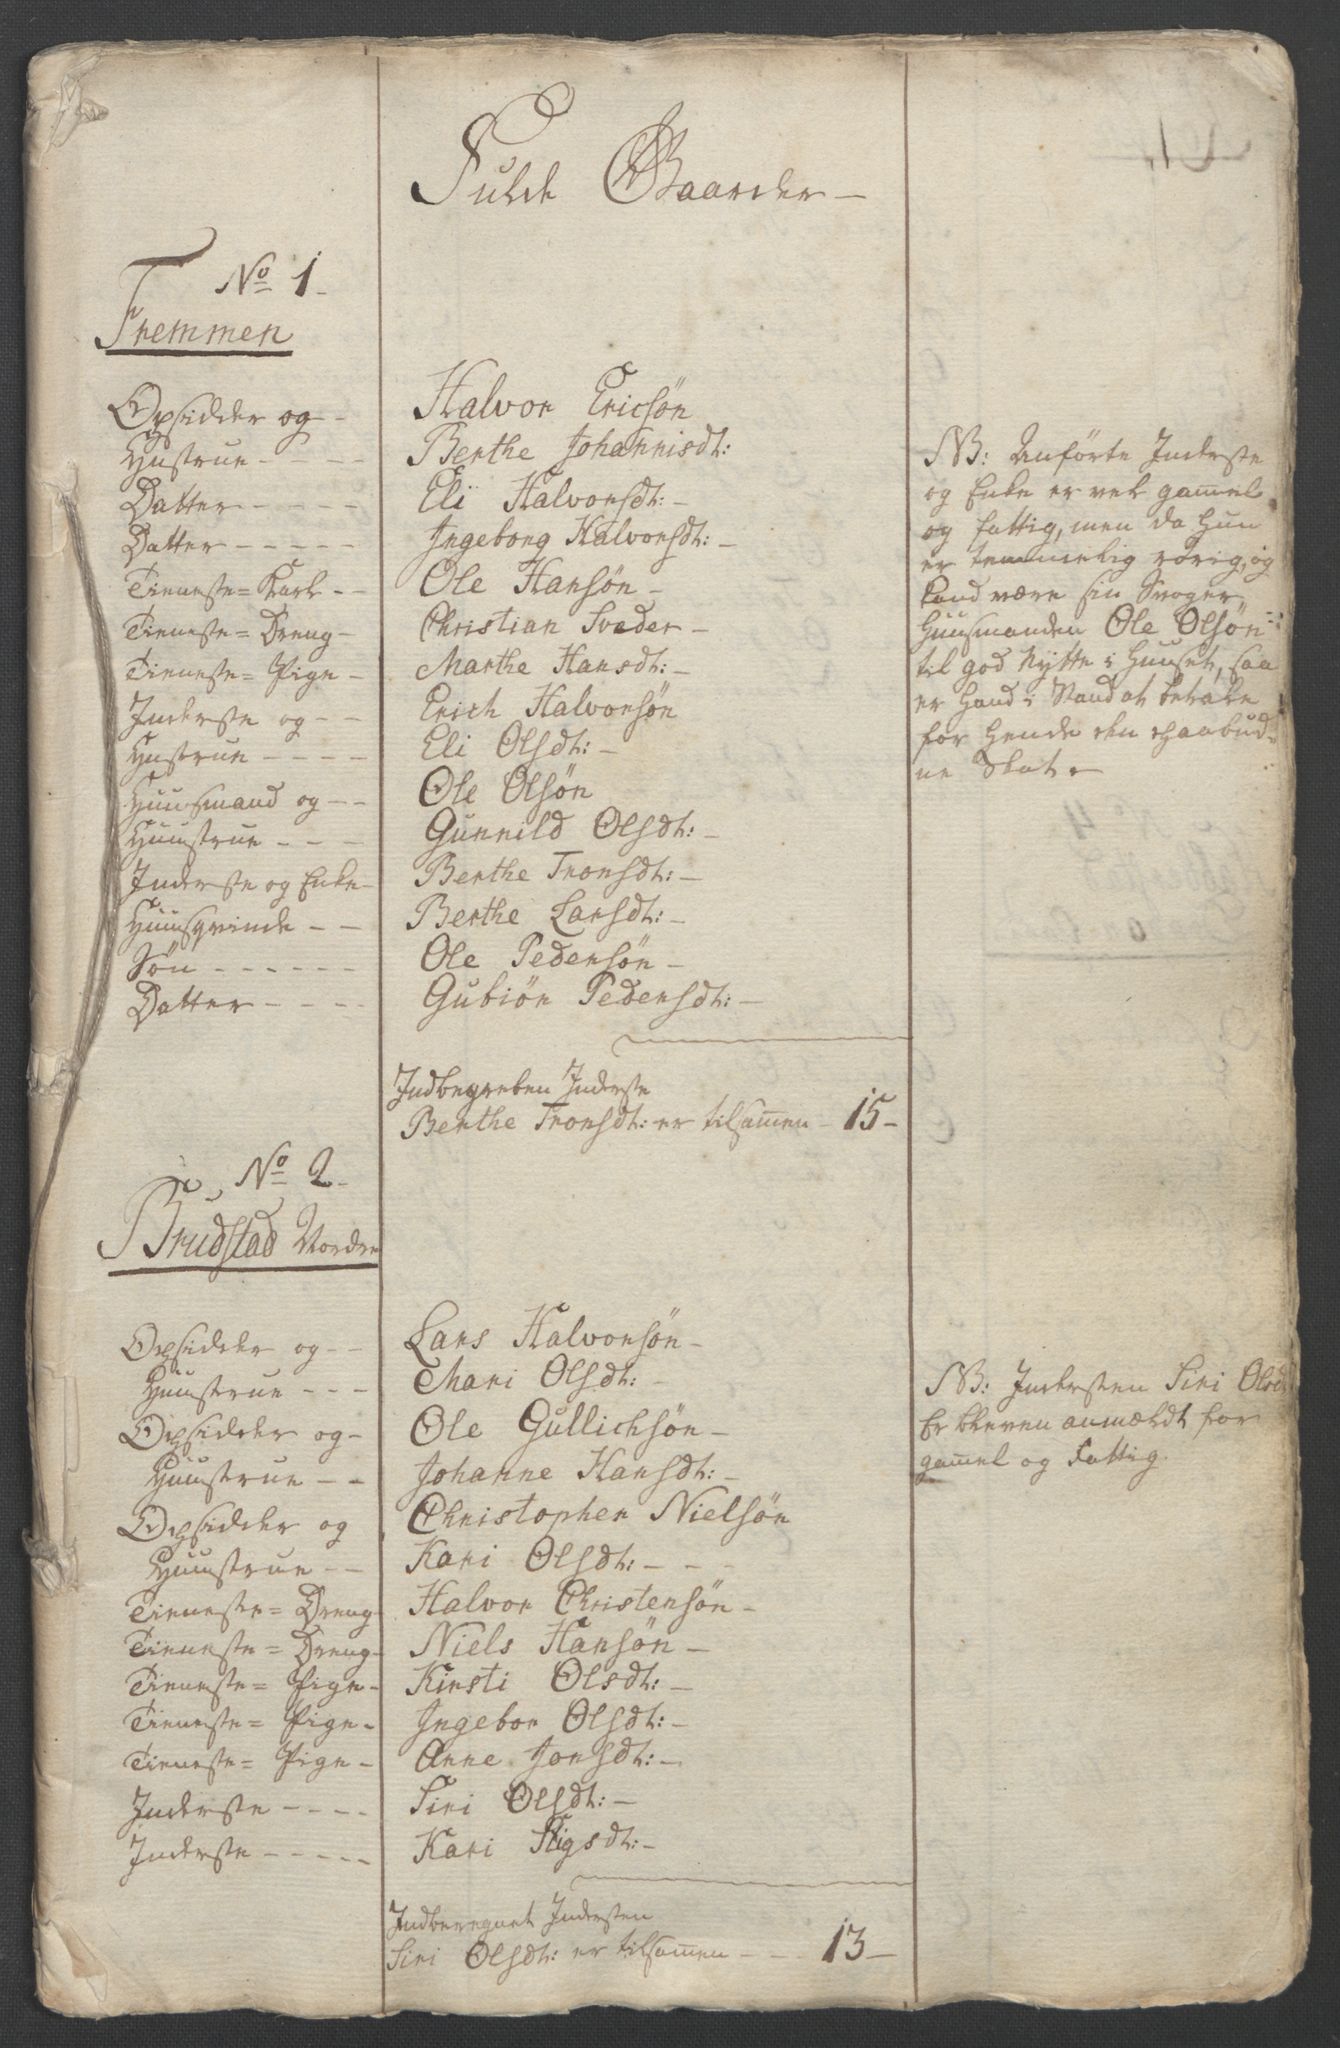 Fulde Gaarder -
No 1 -
Tremmen
Opsidder og - Halvor Ericsøn
Hustrue - - - Berthe Johannisdt:
Datter - - - - Eli Halvorsdt: -
Datter - - - - Ingeborg Halvorsdt: -
Tieneste= Karl - - Ole Hansøn -
Tieneste= Dreng - Christian Sveder -
Tieneste= Pige - Marthe Hansdt: -
Inderste og - - Erich Halvorsøn
Hustrue - - - - Eli Olsdt: -
Huusmand og - - - Ole Olsøn
Huustrue - - - Gunnild Olsdt: -
Inderste og Enke - Berthe Tronsdt: -
Huusqvinde - - Berthe Larsdt: -
Søn - - - - - - Ole Pedersøn -
Datter - - - - Gubiør Pedersdt: -
NB: Anførte Inderste
og Enke er vel gammel
og fattig, men da hun
er temmelig rørig, og
kand være sin Svoger
Huusmanden Ole Olsøn
til god Nytte i Huuset, saa
er hand i Stand at betale
for hende den paabud=
ne Skat -
Indbegreben Inderste
Berthe Tronsdt: er tilsamen - 15 -
No 2 -
Brudstad Nordre
Opsidder og - - Lars Halvorsøn -
Huustrue - - - Mari Olsdt: -
Opsidder og - Ole Gullichsøn -
Huustrue - - Johanne Hansdt: -
Opsidder og Christopher Nielsøn
Huustrue - - Kari Olsdt: - - -
Tieneste= Dreng - Halvor Christensøn -
Tieneste= Dreng - Niels Hansøn -
Tieneste= Pige - Kirsti Olsdt: -
Tieneste= Pige - Ingebor Olsdt: -
Tieneste= Pige - Anne Jonsdt: -
Inderste - - - - Siri Olsdt: -
Inderste - - - - - Kari Stigsdt: -
NB: Indersten Siri Olsdt
Er bleven anmældt for
gammel og Fattig.
Indberegnet Indersten
Siri Olsdt: er tilsamen - - - 13 -